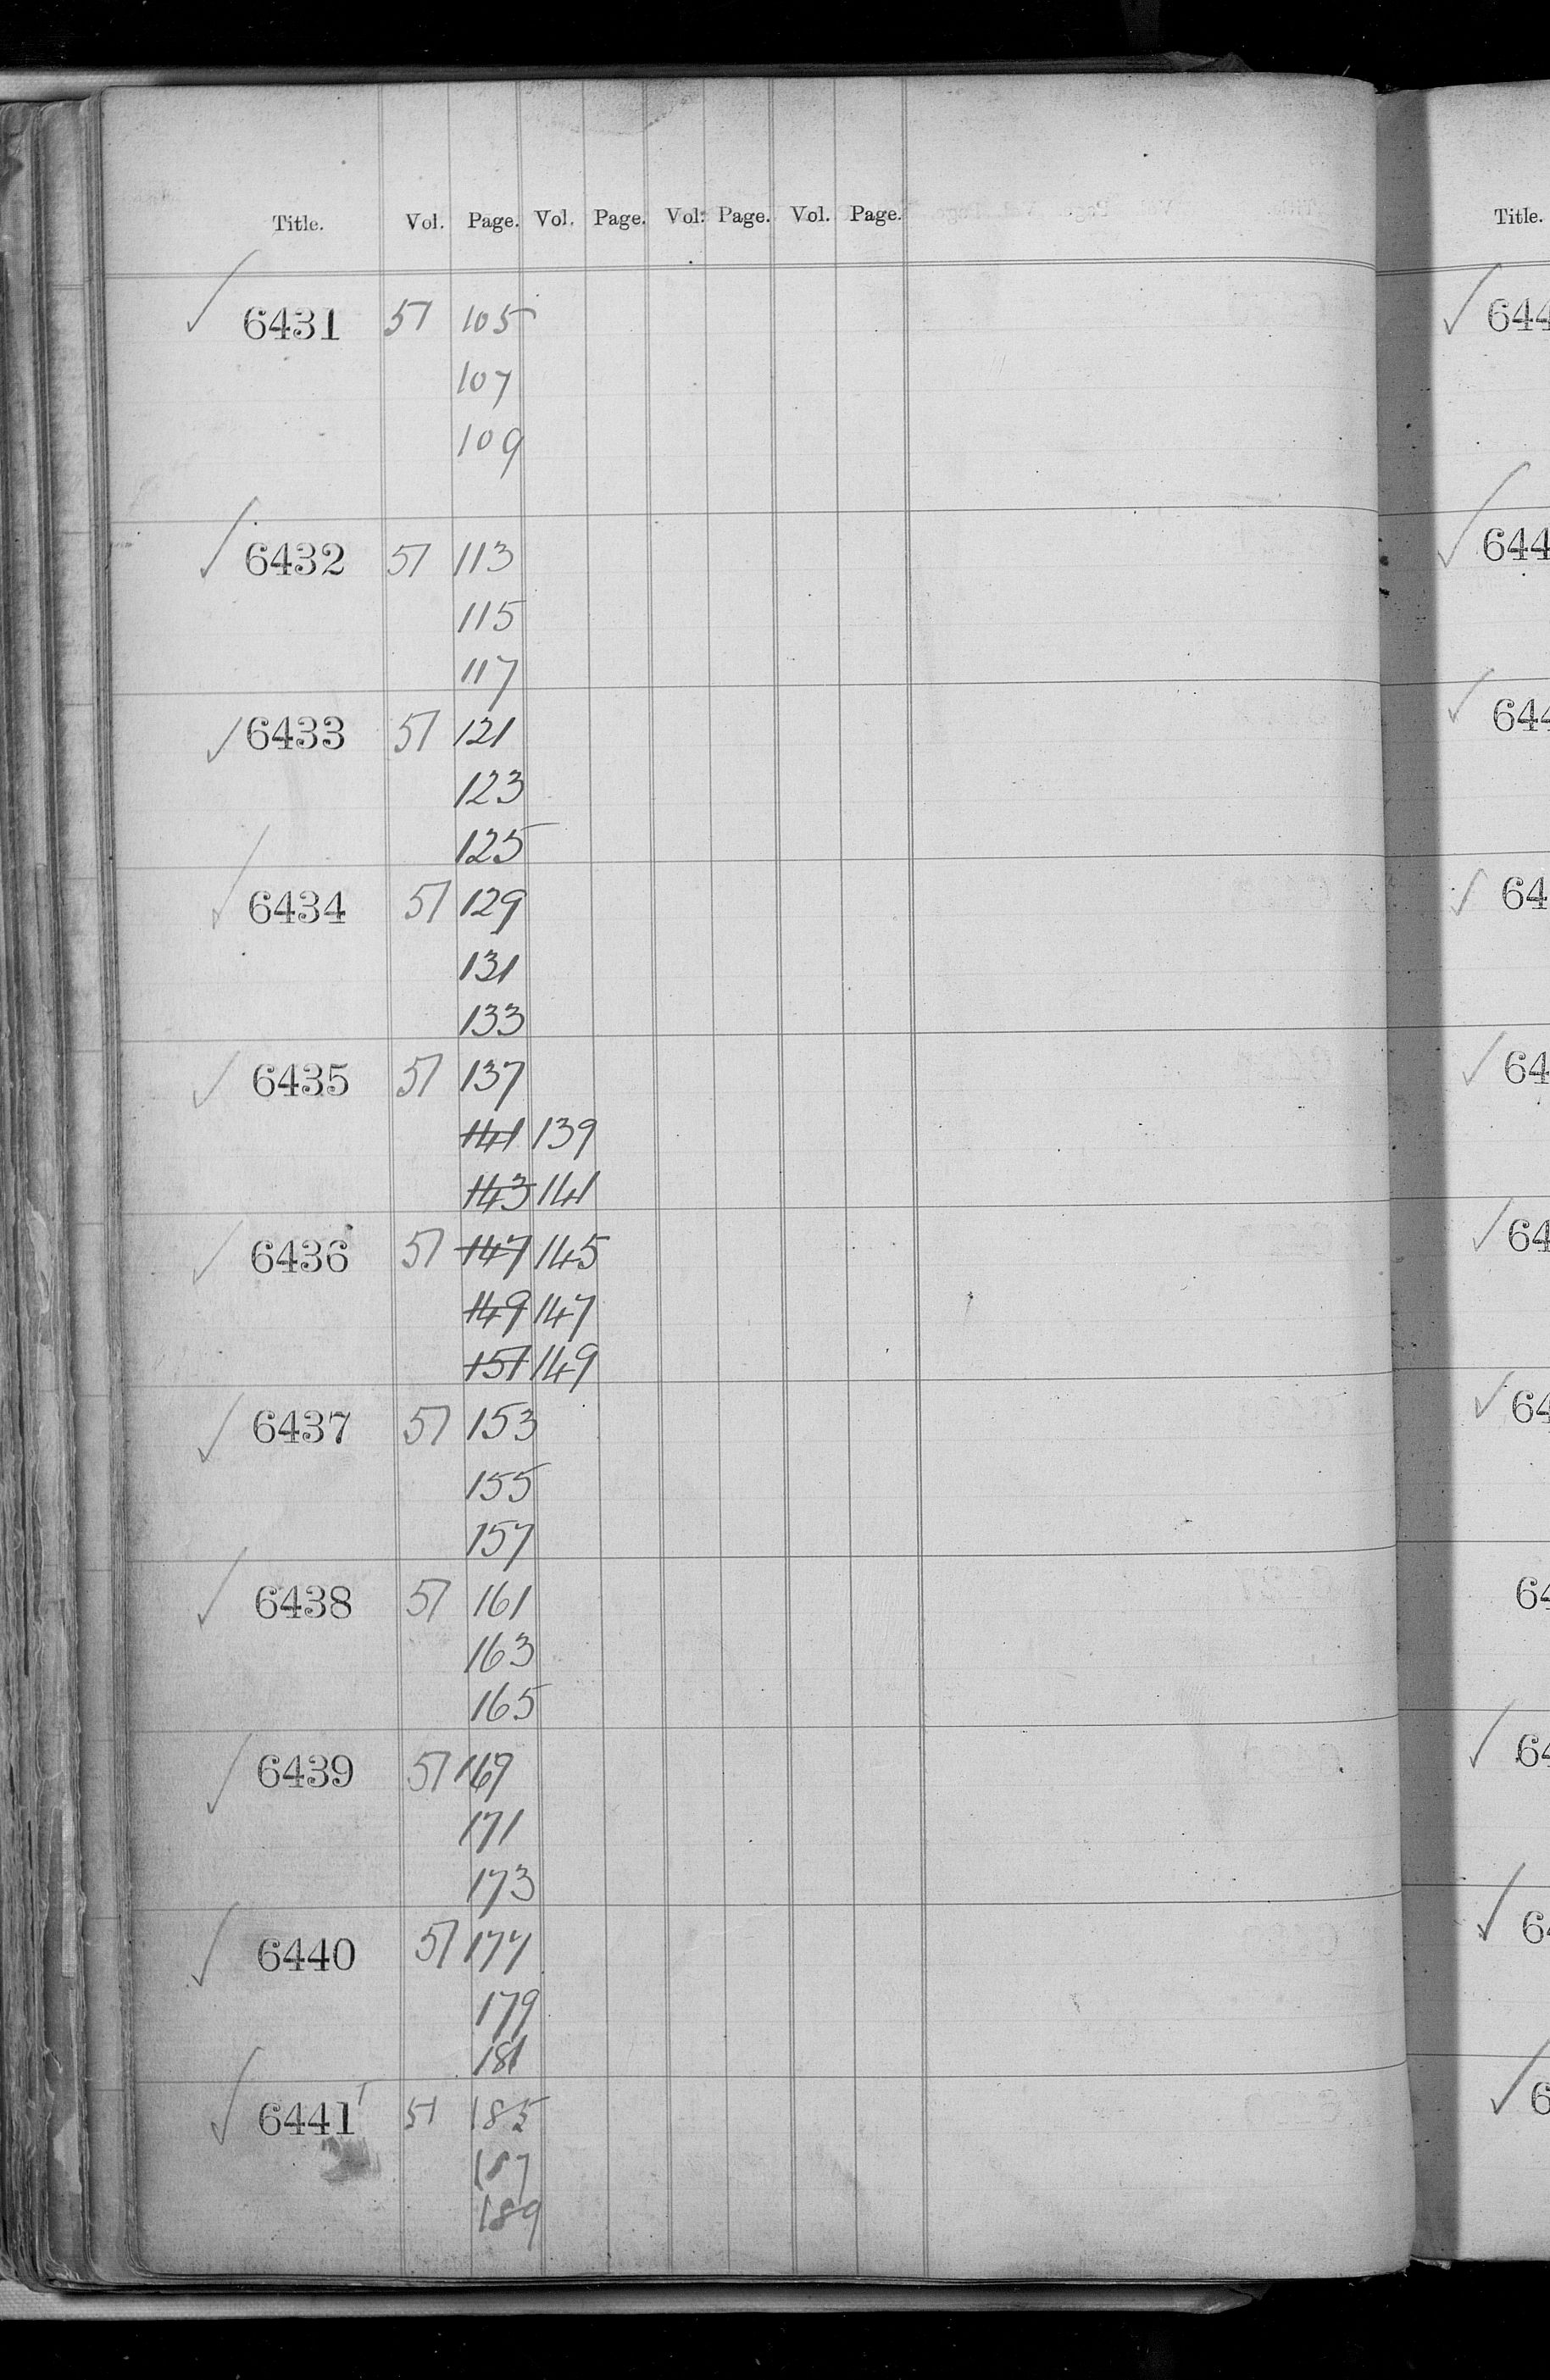 Title. Vol. Page. Vol. Page. Vol. Page. Vol. Page.
✓ 6431 51 105
107
109
✓ 6432 51 113
115
117
✓ 6433 51 121
123
125
✓ 6434 51 129
131
133
✓ 6435 51 137
141 139
143 141
✓ 6436 51 147 145
149 147
151 149
✓ 6437 51 153
155
157
✓ 6438 51 161
163
165
✓ 6439 51 169
171
173
✓ 6440 51 177
179
181
✓ 6441 51 185
187
189
Title.
✓ 644
✓ 644
✓ 644
✓ 64
✓ 64
✓ 64
✓ 64
64
✓ 64
✓ 6
✓ 6